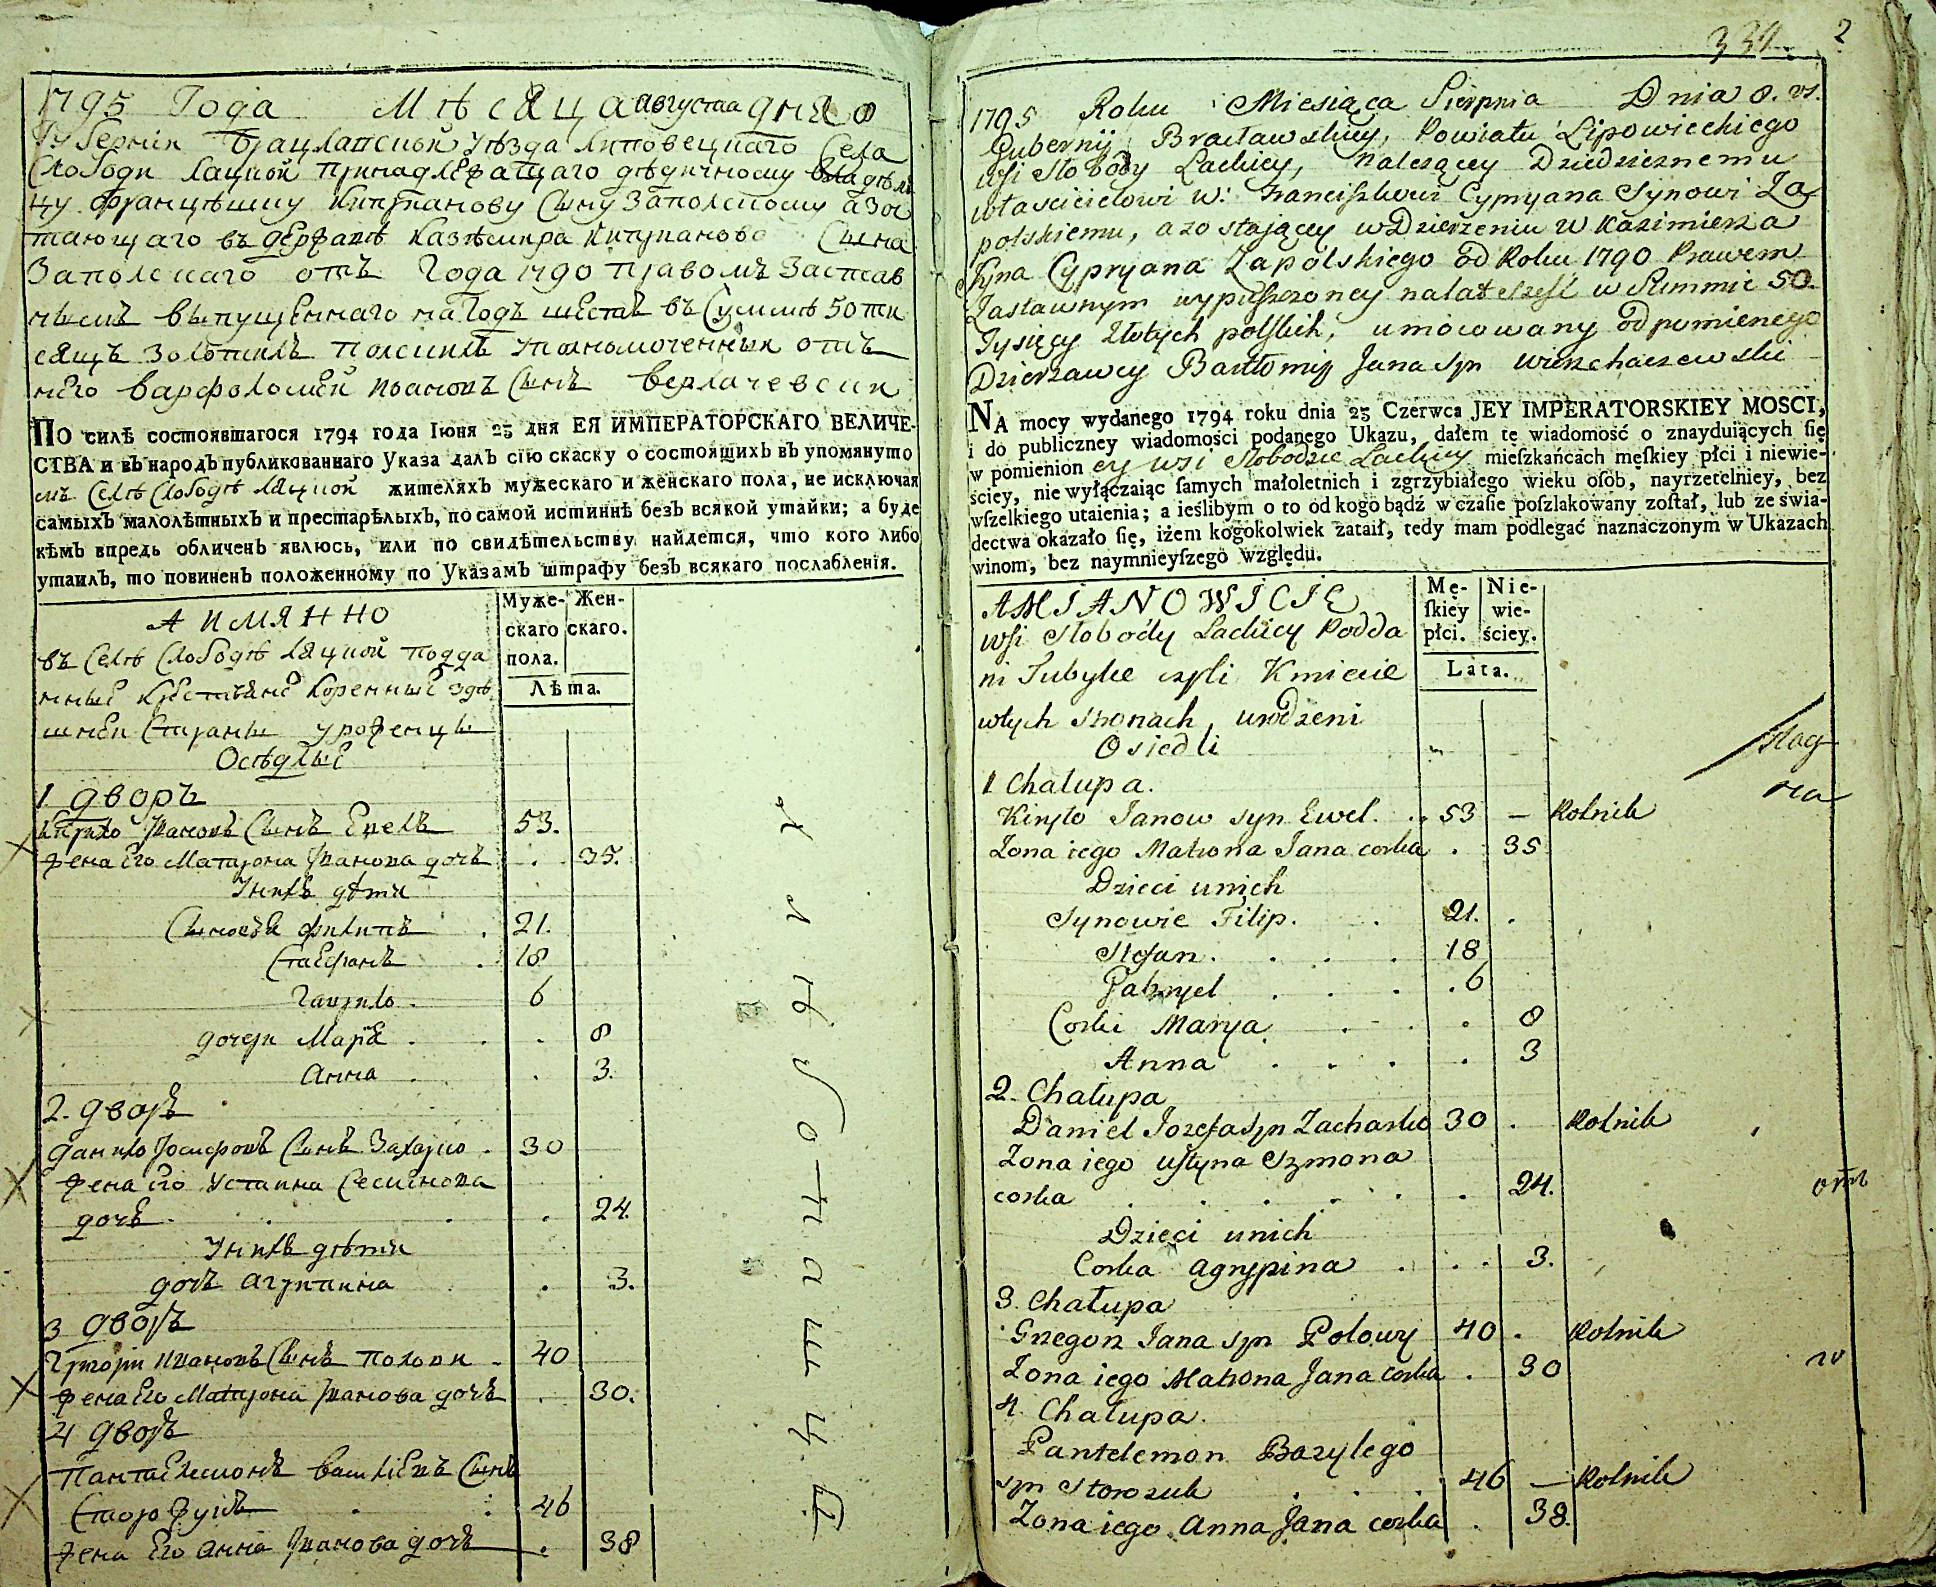 1795 Года Мѣсяца августа дня 8
Губернїи Брацлавской уѣзда Липовецкаго Села
Слободи Ляцкой принадлежащаго дѣдичному владѣль
цу Францѣшку Кипрїанову Сыну Заполскому а зос
тающаго въ держанїѣ Казѣмира Кипрїанова Сына
Заполскаго отъ Года 1790 правомъ Застав
нымъ выпущеннаго на Годъ шесть въ Суммѣ 50 ти
сящъ Золотихъ Полскихъ уполномоченный отъ
него Варфоломей Ивановъ Сынъ
ПО силѣ состоявшагося 1794 года Іюня 25 дня ЕЯ ИМПЕРАТОРСКАГО ВЕЛИЧЕ-
СТВА и въ народъ публикованнаго Указа далъ сїю скаску о состоящихъ въ упомянуто
мъ Селѣ Слободѣ Ляцкой жителяхъ мужескаго и женскаго пола, не исключая
самыхъ малолѣтныхъ и престарѣлыхъ, по самой истиннѣ безъ всякой утайки; а буде
кѣмъ впредь обличенъ явлюсь, или по свидѣтельству найдется, что кого либо
утаилъ, то повиненъ положенному по Указамъ штрафу безъ всякаго послабленїя.
А ИМЯННО
Муже- Жен-
скаго скаго.
пола.
Лѣта.
въ Селѣ Слободѣ Ляцкой подда
нные Крестьяне Коренные здѣ
шней Страны уроженцы
Осѣдлые
1 дворъ
Кирило Ивановъ Сынъ Евелъ 53.
жена Его Матрона Иванова дочь . 35.
У нихъ дѣти
Сыновья Филипъ . 21.
Стефанъ . 18
Гаврило . 6
дочери Марїя . . . 8
Анна . . 3.
2. дворъ
Данило Іосифовъ Сынъ Захарко . 30
жена Его Устина Семионова
дочь . . . . 24.
У нихъ дѣти
дочь Агрипина . 3.
3 дворъ
Григори Ивановъ Сынъ Полови . 40
жена Его Матрона Иванова дочь . 30.
4 дворъ
Панталемонъ Василїевъ Сынъ
Сторожукъ . : 46
жена Его Анна Иванова дочь . 38
331. 2
1795 Roku Miesiąca Sierpnia Dnia 8. vs.
Gubernij Bracławskiey, Powiatu Lipowieckiego
wsi Słobody Lackiey, należącey Dziedzicznemu
właścicielowi w: Franciszkowi Cypryana Synowi Za
polskiemu, a zostającey w Dzierżeniu w Kazimierza
Syna Cypryana Zapolskiego od Roku 1790 Prawem
Zastawnym wypuszczoney na lat sześć w Summie 50.
Tysięcy Złotych polskich, umocowany od pomienego
Dzierżawcy Bartłomiy Jana syn
NA mocy wydanego 1794 roku dnia 25 Czerwca JEY IMPERATORSKIEY MOSCI,
i do publiczney wiadomości podanego Ukazu, dałem tę wiadomość o znayduiących ſię
w pomienion ey wsi Słobodzie Lackiey mieſzkańcach męſkiey płci i niewie-
ściey, nie wyłączaiąc ſamych małoletnich i zgrzybiałego wieku osób, nayrzetelniey, bez
wſzelkiego utaienia; a ieślibym o to od kogo bądź w czaſie poſzlakowany zoſtał, lub ze świa-
dectwa okazało ſię, iżem kogokolwiek zataił, tedy mam podlegać naznaczonym w Ukazach
winom, bez naymnieyſzego względu.
AMIANOWICIE
Mę- Nie-
ſkiey wie-
płci. ściey.
Lata.
wsi Słobody Lackiey Podda
ni Tubylce czyli Kmiecie
w tych stronach, urodzeni
Osiedli
1 Chałupa.
Kiryło Janow syn Ewel. . 53 – Rolnik
Zona iego Matrona Jana corka . 35
Dzieci unich
Synowie Filip. . 21. .
Stefan . . . . 18
Gabryel . . . . 6
Corki Marya . . . . 8
Anna . . . . . 3
2. Chałupa
Daniel Jozefa syn Zacharko 30 . Rolnik
Zona iego Ustyna Szmona
corka . . . . . . 24.
Dzieci unich
Corka Agrypina . . . 3.
3. Chałupa
Grzegorz Jana syn Połowy 40 . Rolnik
Zona iego Matrona Jana corka . 30
4 Chałupa.
Pantelemon Bazylego
syn Storozuk . . . . 46 – Rolnik
Zona iego Anna Jana corka . 38.